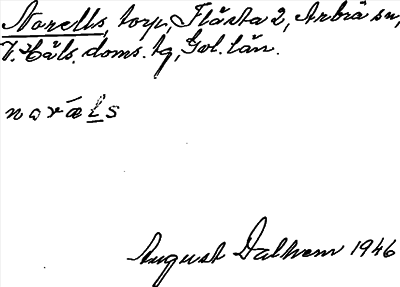 Norells, torp, Flästa 2, Arbrå sn,
V. Häls. doms. tg, Gvl. län.
noræ̀ḻs
August Dalhem 1946